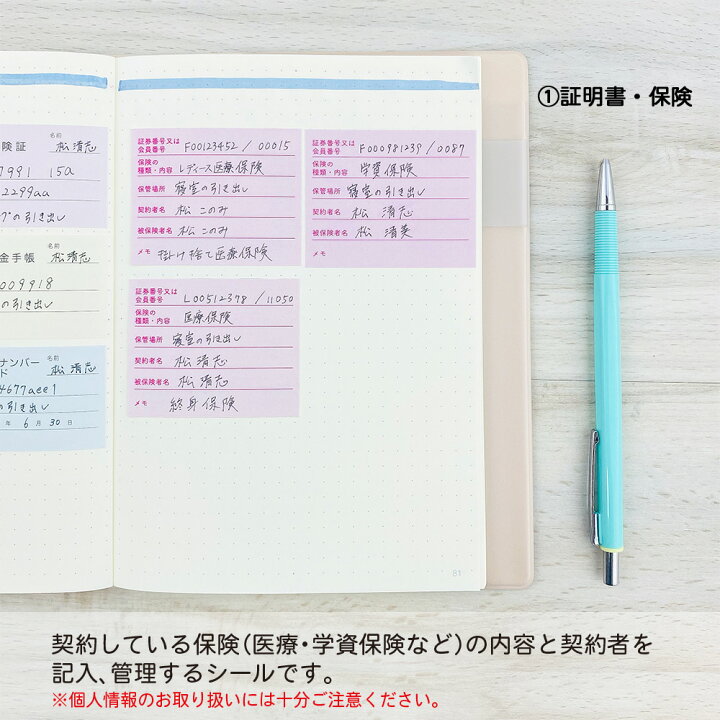 ①証明書・保険
険証
名前
松 清志
7991 15a
2299aa
の引き出し
金手帳
名前
松清志
009918
の引き出し
ナンバー
ド
名前
松 清志
4677aee1
の引き出し
年 6 月 30 日
証券番号又は
会員番号 F00123452 / 00015
保険の
種類・内容 レディース医療保険
保管場所 寝室の引き出し
契約者名 松 このみ
被保険者名 松 このみ
メモ 掛け捨て医療保険
証券番号又は
会員番号 F000981239 / 0087
保険の
種類・内容 学資保険
保管場所 寝室の引き出し
契約者名 松 清志
被保険者名 松 清美
メモ
証券番号又は
会員番号 L00512378 / 11050
保険の
種類・内容 医療保険
保管場所 寝室の引き出し
契約者名 松 清志
被保険者名 松 清志
メモ 終身保険
81
契約している保険（医療・学資保険など）の内容と契約者を
記入、管理するシールです。
※個人情報のお取り扱いには十分ご注意ください。